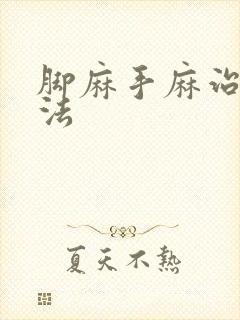 脚麻手麻治
法
夏天不热